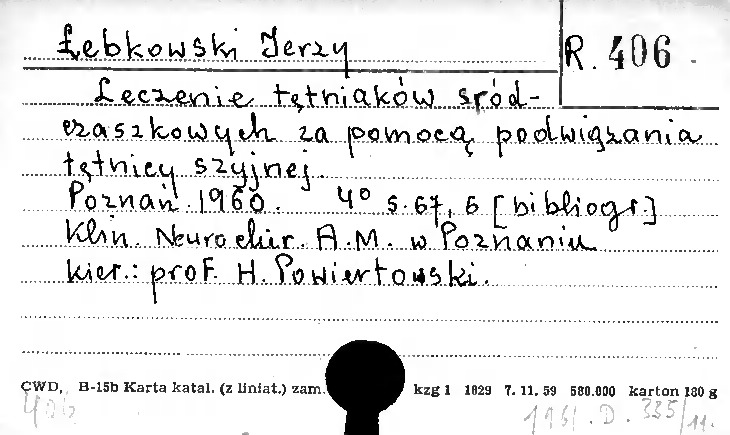 Łebkowski Jerzy
R. 406
Leczenie tętniaków śród-
czaszkowych za pomocą podwiązania
tętnicy szyjnej.
Poznań 1960. 4° s. 67, 6 [bibliogr.]
Klin. Neurochir. A.M. w Poznaniu
kier.: prof. H. Powiertowski.
CWD, B-15b Karta katal. (z liniat.) zam. kzg 1 1829 7. 11. 59 580.000 karton 180 g
406
1961. D. 335/11.